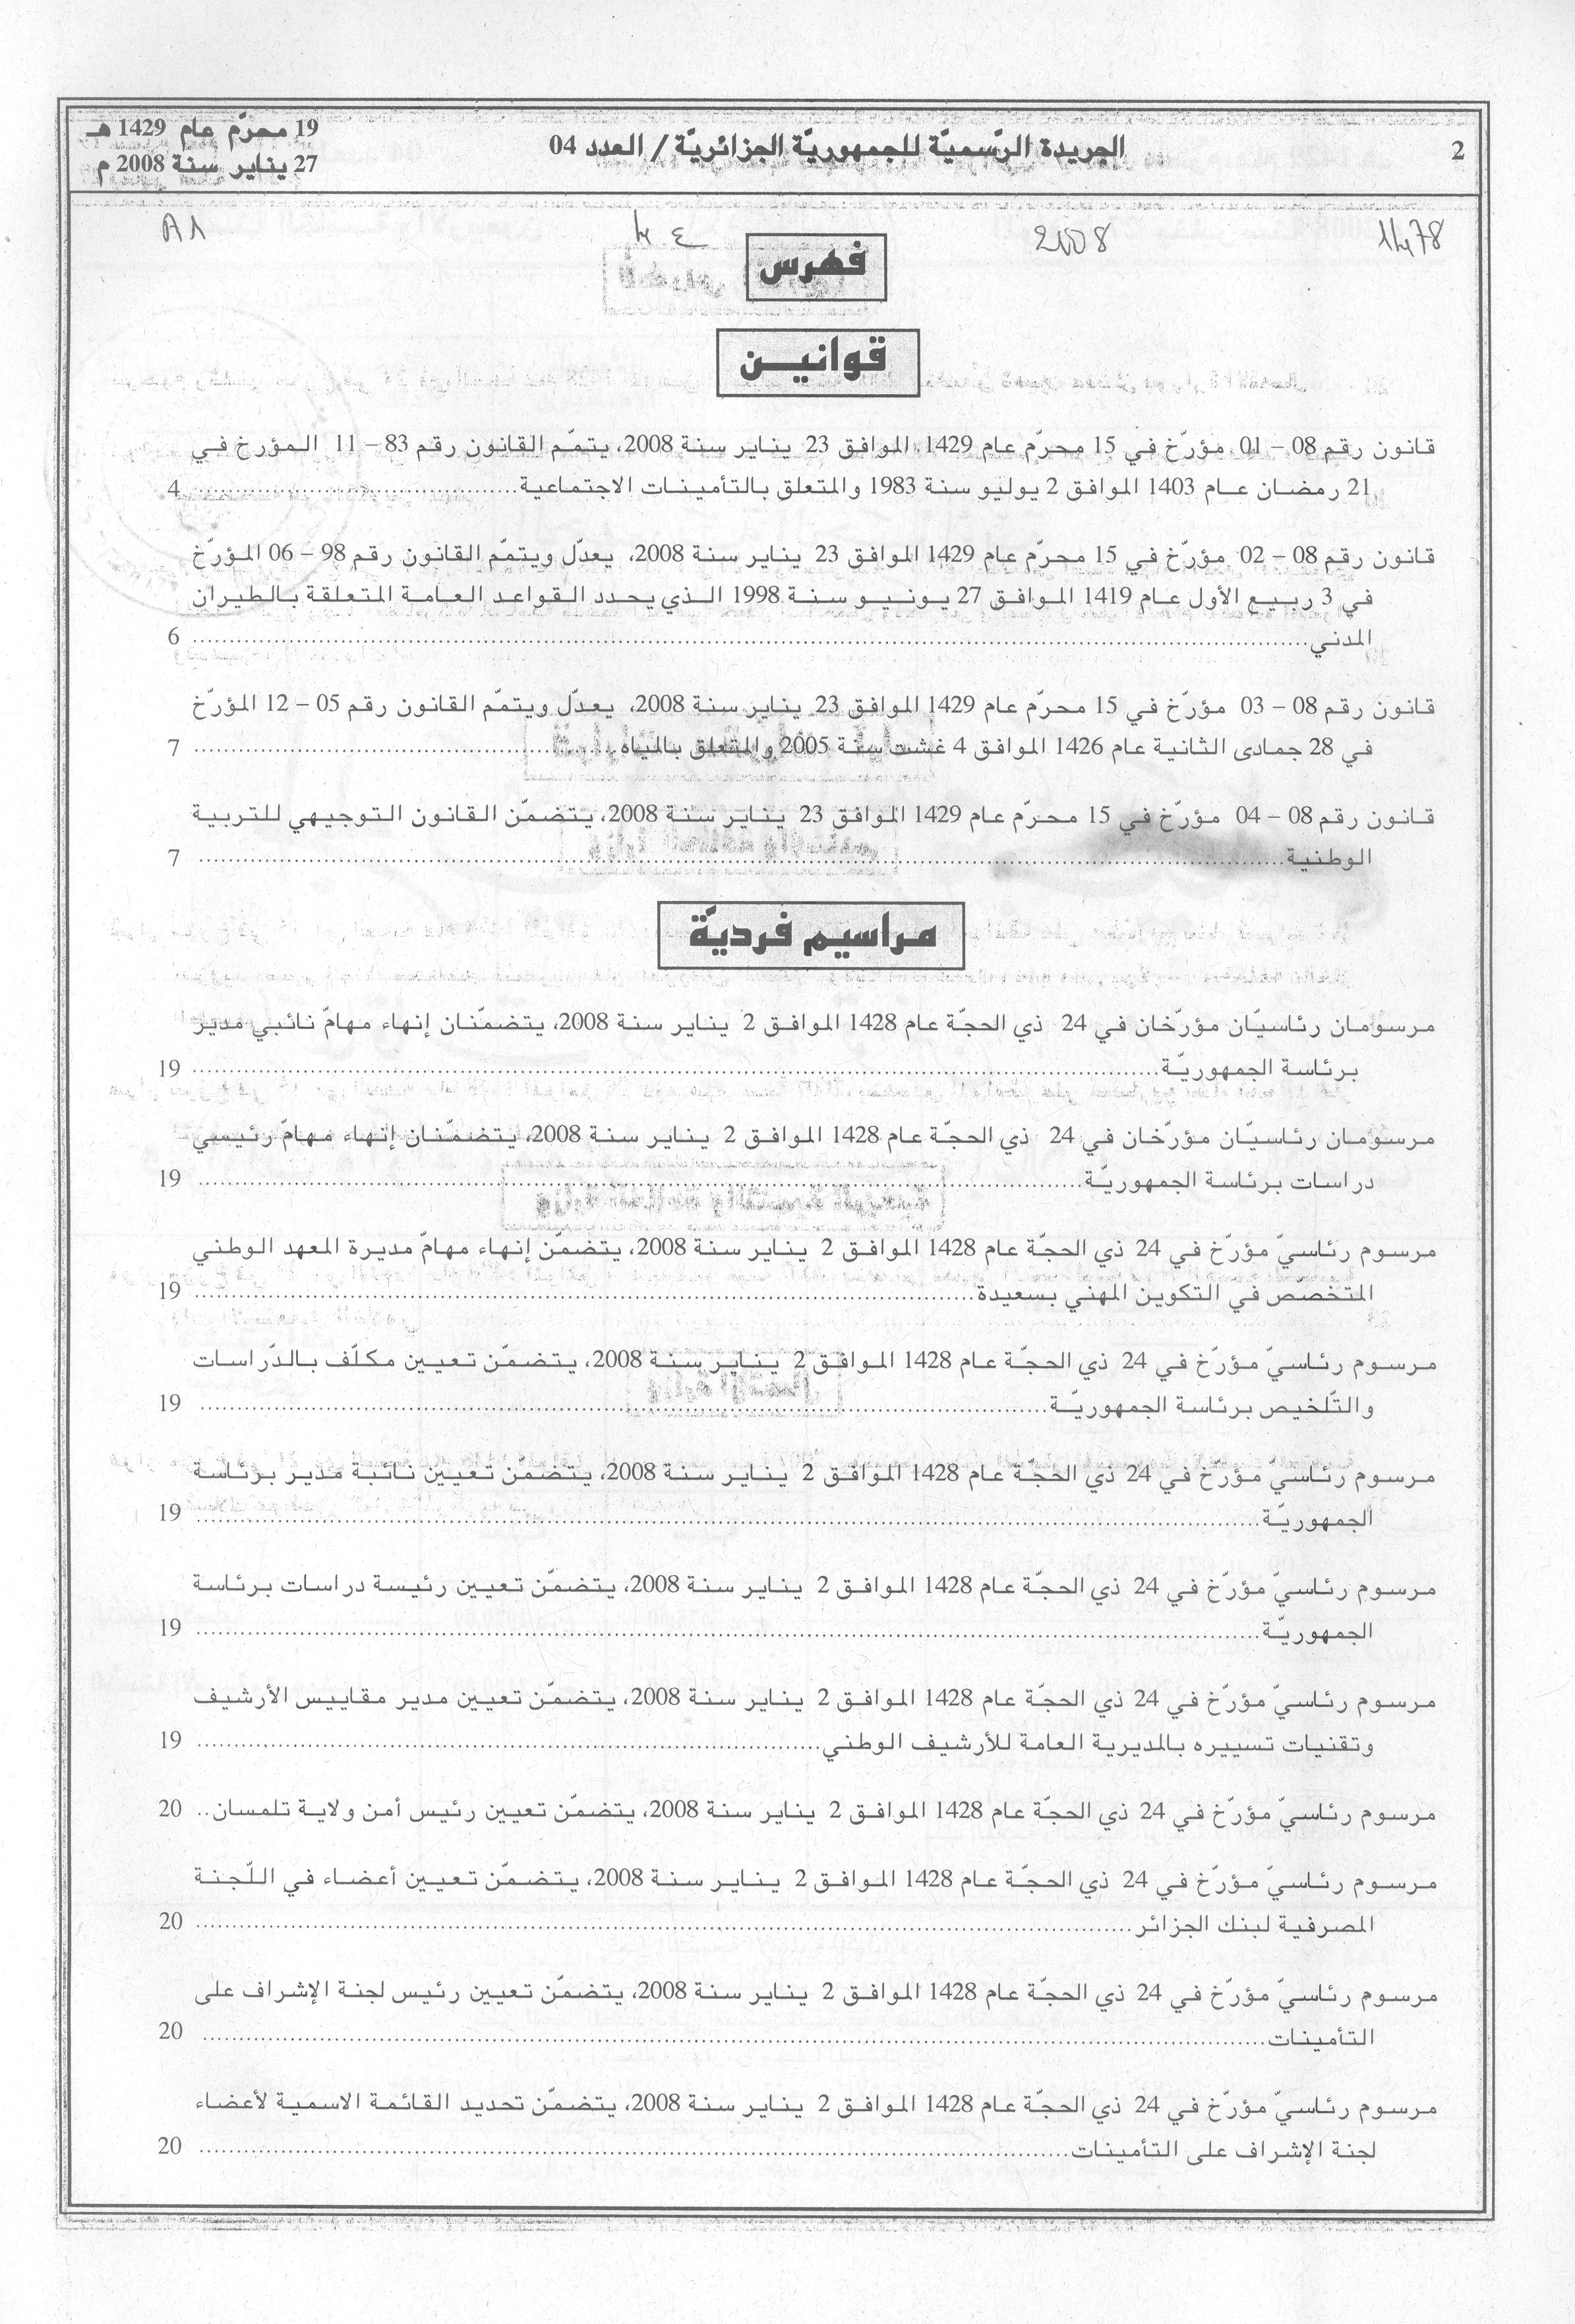 2
الجريدة الرّسميّة للجمهوريّة الجزائريّة / العدد 04
19 محرّم عام 1429 هـ
27 يناير سنة 2008 م
1478
2008
A1
فهرس
قوانين
قانون رقم 08 – 01 مؤرّخ في 15 محرّم عام 1429، الموافق 23 يناير سنة 2008، يتمّم القانون رقم 83 – 11 المؤرخ في
21 رمضان عام 1403 الموافق 2 يوليو سنة 1983 والمتعلق بالتأمينات الاجتماعية........ 4
قانون رقم 08 – 02 مؤرّخ في 15 محرّم عام 1429 الموافق 23 يناير سنة 2008، يعدّل ويتمّم القانون رقم 98 – 06 المؤرّخ
في 3 ربيع الأول عام 1419 الموافق 27 يونيو سنة 1998 الذي يحدد القواعد العامة المتعلقة بالطيران
المدني........ 6
قانون رقم 08 – 03 مؤرّخ في 15 محرّم عام 1429 الموافق 23 يناير سنة 2008، يعدّل ويتمّم القانون رقم 05 – 12 المؤرّخ
في 28 جمادى الثانية عام 1426 الموافق 4 غشت سنة 2005 والمتعلق بالمياه........ 7
قانون رقم 08 – 04 مؤرّخ في 15 محرّم عام 1429 الموافق 23 يناير سنة 2008، يتضمّن القانون التوجيهي للتربية
الوطنية........ 7
مراسيم فرديّة
مرسومان رئاسيّان مؤرّخان في 24 ذي الحجّة عام 1428 الموافق 2 يناير سنة 2008، يتضمّنان إنهاء مهامّ نائبي مدير
برئاسة الجمهوريّة........ 19
مرسومان رئاسيّان مؤرّخان في 24 ذي الحجّة عام 1428 الموافق 2 يناير سنة 2008، يتضمّنان إنهاء مهامّ رئيسي
دراسات برئاسة الجمهوريّة........ 19
مرسوم رئاسيّ مؤرّخ في 24 ذي الحجّة عام 1428 الموافق 2 يناير سنة 2008، يتضمّن إنهاء مهامّ مديرة المعهد الوطني
المتخصّص في التكوين المهني بسعيدة........ 19
مرسوم رئاسيّ مؤرّخ في 24 ذي الحجّة عام 1428 الموافق 2 يناير سنة 2008، يتضمّن تعيين مكلّف بالدّراسات
والتّلخيص برئاسة الجمهوريّة........ 19
مرسوم رئاسيّ مؤرّخ في 24 ذي الحجّة عام 1428 الموافق 2 يناير سنة 2008، يتضمّن تعيين نائبة مدير برئاسة
الجمهوريّة........ 19
مرسوم رئاسيّ مؤرّخ في 24 ذي الحجّة عام 1428 الموافق 2 يناير سنة 2008، يتضمّن تعيين رئيسة دراسات برئاسة
الجمهوريّة........ 19
مرسوم رئاسيّ مؤرّخ في 24 ذي الحجّة عام 1428 الموافق 2 يناير سنة 2008، يتضمّن تعيين مدير مقاييس الأرشيف
وتقنيات تسييره بالمديرية العامة للأرشيف الوطني........ 19
مرسوم رئاسيّ مؤرّخ في 24 ذي الحجّة عام 1428 الموافق 2 يناير سنة 2008، يتضمّن تعيين رئيس أمن ولاية تلمسان.. 20
مرسوم رئاسيّ مؤرّخ في 24 ذي الحجّة عام 1428 الموافق 2 يناير سنة 2008، يتضمّن تعيين أعضاء في اللّجنة
المصرفية لبنك الجزائر........ 20
مرسوم رئاسيّ مؤرّخ في 24 ذي الحجّة عام 1428 الموافق 2 يناير سنة 2008، يتضمّن تعيين رئيس لجنة الإشراف على
التأمينات........ 20
مرسوم رئاسيّ مؤرّخ في 24 ذي الحجّة عام 1428 الموافق 2 يناير سنة 2008، يتضمّن تحديد القائمة الاسمية لأعضاء
لجنة الإشراف على التأمينات........ 20